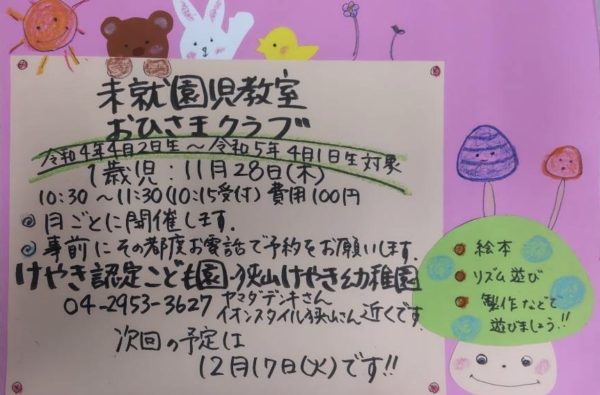 未就園児教室
おひさまクラブ
令和4年4月2日生～令和5年4月1日生対象
1歳児：11月28日(木)
10:30～11:30(10:15受付)費用100円
月ごとに開催します.
事前にその都度お電話で予約をお願いします.
けやき認定こども園・狭山けやき幼稚園
04-2953-3627 ヤマダデンキさん
イオンスタイル狭山さん 近くです.
次回の予定は
12月17日(火)です!!
絵本
リズム遊び
製作などで
遊びましょう!!